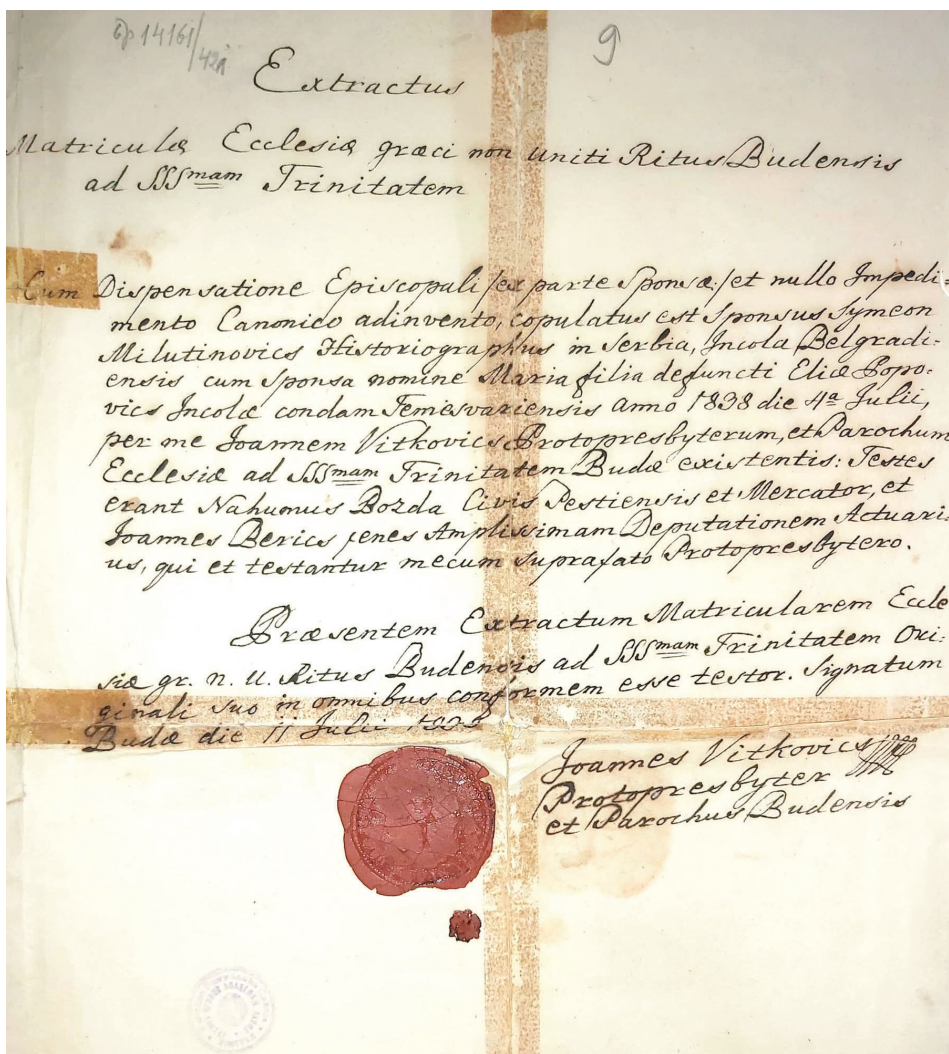 14161/421
9
Extractus
Matriculæ Ecclesiæ græci non uniti Ritus Budensis
ad SSSmam Trinitatem
Cum Dispensatione Episcopali /:ex parte Sponsæ:/ et nullo Impedi-
mento Canonico adinvento, copulatus est Sponsus Symeon
Milutinovics Historiographus in Serbia, Incola Belgradi-
ensis cum Sponsa nomine Maria filia defuncti Eliæ Popo-
vics Incolæ condam Temesvariensis anno 1838 die 4a Julii,
per me Joannem Vitkovics Protopresbyterum, et Parochum
Ecclesiæ ad SSSmam Trinitatem Budæ existentis: Testes
erant Nahumus Bozda Civis Pestiensis et Mercator, et
Joannes Berics penes Amplissimam Deputationem Actuari-
us, qui et testantur mecum suprafato Protopresbytero.
Præsentem Extractum Matricularem Eccle
siæ gr. n. U. Ritus Budensis ad SSSmam Trinitatem Ori-
ginali suo in omnibus conformem esse testor. Signatum
Budæ die 11 Julii
Joannes Vitkovics
Protopresbyter
et Parochus Budensis